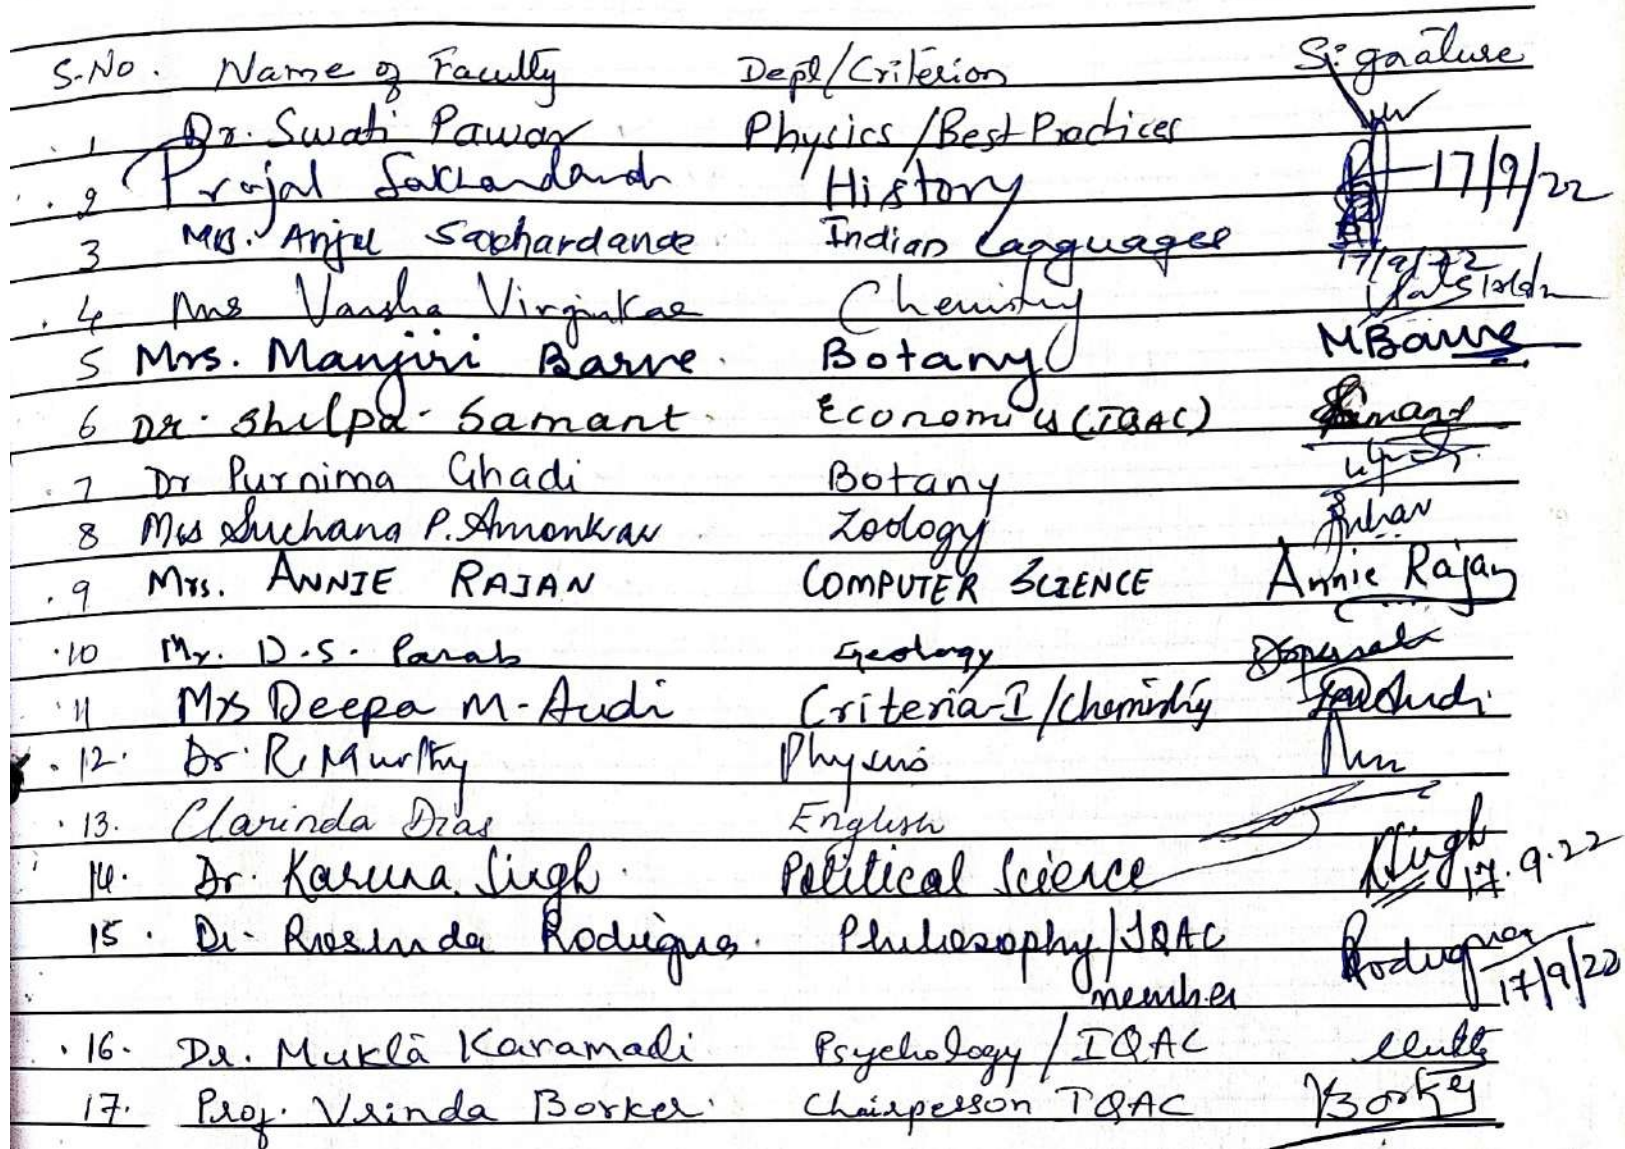 S.No. Name of Faculty Dept/Criterion Signature
1 Dr. Swati Pawar Physics/Best Practices
2 Prajal Sakhardande History 17/9/22
3 Mrs. Anju Sakhardande Indian Languages 17/9/22
4 Mrs Varsha Virginkar Chemistry
5 Mrs. Manjiri Barve Botany MBarve
6 Dr. Shilpa Samant Economics (IQAC) Samant
7 Dr Purnima Ghadi Botany
8 Mrs Suchana P. Amonkar Zoology
9 Mrs. ANNIE RAJAN COMPUTER SCIENCE Annie Rajan
10 Mr. D.S. Parab Geology
11 Mrs Deepa M. Audi Criteria-I/Chemistry Audi
12. Dr R. Murthy Physics
13. Clarinda Dias English
14. Dr. Karuna Singh Political Science KSingh 17.9.22
15. Dr. Rosinda Rodrigues. Philosophy/IQAC Rodrigues
member 17/9/22
16. Dr. Mukta Karamadi Psychology/IQAC
17. Prof. Vrinda Borker Chairperson IQAC VBorker